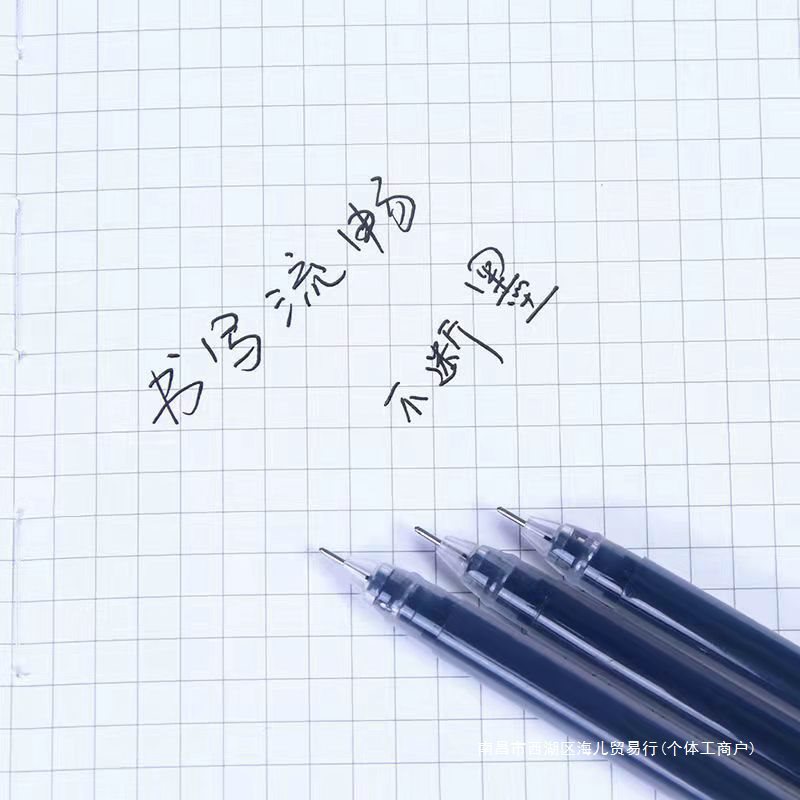 书写流畅
不断墨
南昌市西湖区海儿贸易行(个体工商户)